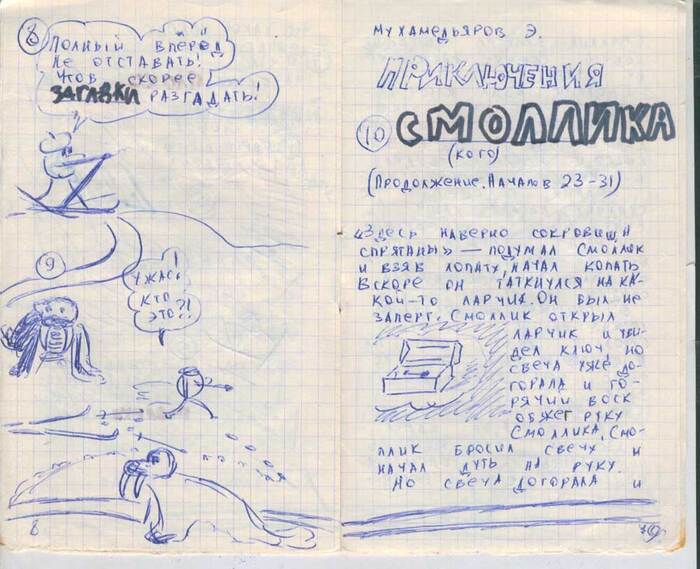 8
ПОЛНЫЙ ВПЕРЁД
НЕ ОТСТАВАТЬ!
ЧТОБ СКОРЕЕ
ЗАГАВКИ РАЗГАДАТЬ!
9
УЖАС!
КТО
ЭТО?!
8
МУХАМЕДЬЯРОВ Э.
ПРИКЛЮЧЕНИЯ
10 СМОЛЛИКА
(КОГО)
(ПРОДОЛЖЕНИЕ. НАЧАЛО В 23-31)
«ЗДЕСЬ НАВЕРНО СОКРОВИЩА
СПРЯТАНЫ» — ПОДУМАЛ СМОЛЛИК
И ВЗЯВ ЛОПАТУ, НАЧАЛ КОПАТЬ
ВСКОРЕ ОН НАТКНУЛСЯ НА КА-
КОЙ-ТО ЛАРЧИК. ОН БЫЛ НЕ
ЗАПЕРТ. СМОЛЛИК ОТКРЫЛ
ЛАРЧИК И УВИ-
ДЕЛ КЛЮЧ, НО
СВЕЧА УЖЕ ДО-
ГОРАЛА И ГО-
РЯЧИЙ ВОСК
ОБЖЁГ РУКУ
СМОЛЛИКА. СМО-
ЛЛИК БРОСИЛ СВЕЧУ И
НАЧАЛ ДУТЬ НА РУКУ.
НО СВЕЧА ДОГОРАЛА И